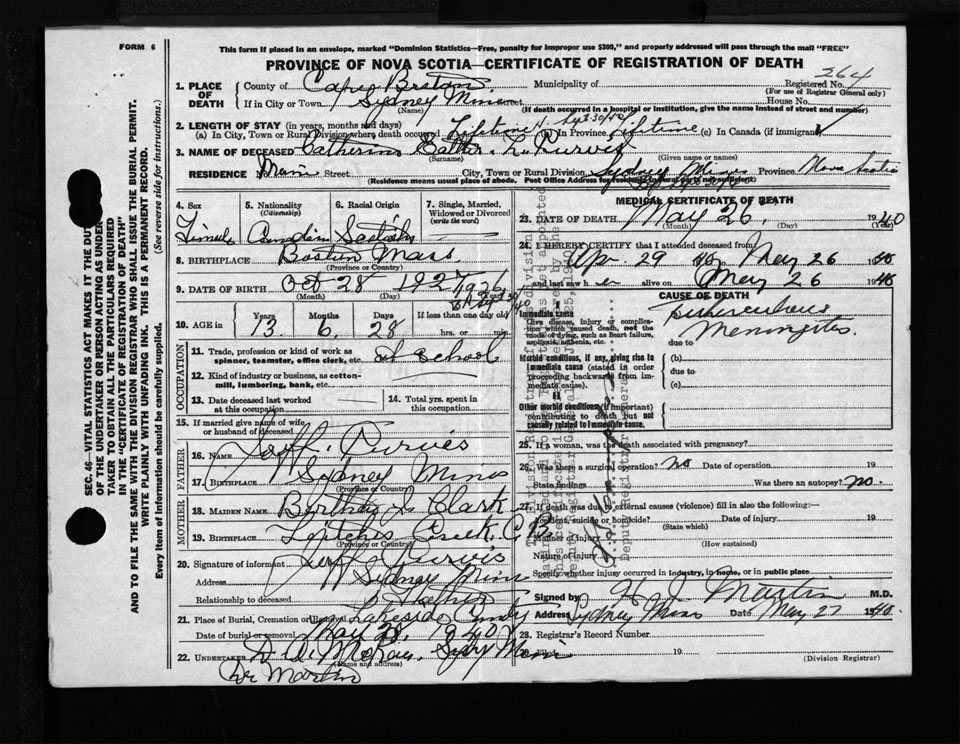 FORM 6
This form if placed in an envelope, marked "Dominion Statistics—Free, penalty for improper use $300," and properly addressed will pass through the mail "FREE"
PROVINCE OF NOVA SCOTIA—CERTIFICATE OF REGISTRATION OF DEATH
264
1. PLACE OF DEATH
County of Cape Breton Municipality of Registered No.
(For use of Registrar General only)
If in City or Town Sydney Mines Street House No.
(Name) (If death occurred in a hospital or institution, give name instead of street and number)
2. LENGTH OF STAY (in years, months and days)
(a) In City, Town or Rural Division where death occurred Lifetime (b) In Province Lifetime (c) In Canada (if immigrant)
3. NAME OF DECEASED Catherine Purves
(Surname) (Given name or names)
RESIDENCE Main Street City, Town or Rural Division Sydney Mines Province Nova Scotia
(Residence means usual place of abode. Post Office Address for residents in rural parts not sufficient)
4. Sex 5. Nationality (Citizenship) 6. Racial Origin 7. Single, Married, Widowed or Divorced (write the word)
Female Canadian Scottish
8. BIRTHPLACE Boston Mass
(Province or Country)
9. DATE OF BIRTH Oct 28 1927 1926
(Month) (Day)
10. AGE in Years Months Days If less than one day old
13 6 28 hrs. or min.
OCCUPATION
11. Trade, profession or kind of work as spinner, teamster, office clerk, etc. At School
12. Kind of industry or business, as cotton-mill, lumbering, bank, etc.
13. Date deceased last worked at this occupation 14. Total yrs. spent in this occupation
15. If married give name of wife or husband of deceased
FATHER
16. Name Purves
17. Birthplace Sydney Mines
(Province or Country)
MOTHER
18. Maiden Name Clark
19. Birthplace C B
(Province or Country)
20. Signature of informant Purves
Address Sydney Mines
Relationship to deceased Father
21. Place of Burial, Cremation or Removal Lakeside
Date of burial or removal May 28, 1940
22. Undertaker D. A. McRae. Mines
(Name and address)
Dr Martin
MEDICAL CERTIFICATE OF DEATH
23. DATE OF DEATH May 26. 1940
(Month) (Day) (Year)
24. I HEREBY CERTIFY that I attended deceased from
Apr 29 40 to May 26 1940
and last saw her alive on May 26 1940
CAUSE OF DEATH
I
Immediate cause
Give disease, injury or complication which caused death, not the mode of dying, such as heart failure, asphyxia, asthenia, etc.
Tuberculous
Meningites.
due to
Morbid conditions, if any, giving rise to immediate cause (stated in order proceeding backwards from immediate cause).
(b)
due to
(c)
II
Other morbid conditions (if important) contributing to death but not causally related to immediate cause.
25. If a woman, was the death associated with pregnancy?
26. Was there a surgical operation? no Date of operation 19
State findings Was there an autopsy? no.
27. If death was due to external causes (violence) fill in also the following:—
Accident, suicide or homicide? Date of injury 19
(State which)
Manner of injury
(How sustained)
Nature of injury
Specify whether injury occurred in industry, in home, or in public place
Signed by Martin M.D.
Address Sydney Mines Date May 27 1940.
28. Registrar's Record Number
19
(Division Registrar)
SEC. 46—VITAL STATISTICS ACT MAKES IT THE DUTY
OF THE UNDERTAKER OR PERSON ACTING AS UNDERTAKER TO OBTAIN ALL THE PARTICULARS REQUIRED
IN THE "CERTIFICATE OF REGISTRATION OF DEATH"
AND TO FILE THE SAME WITH THE DIVISION REGISTRAR WHO SHALL ISSUE THE BURIAL PERMIT.
WRITE PLAINLY WITH UNFADING INK. THIS IS A PERMANENT RECORD.
Every item of information should be carefully supplied. (See reverse side for instructions.)